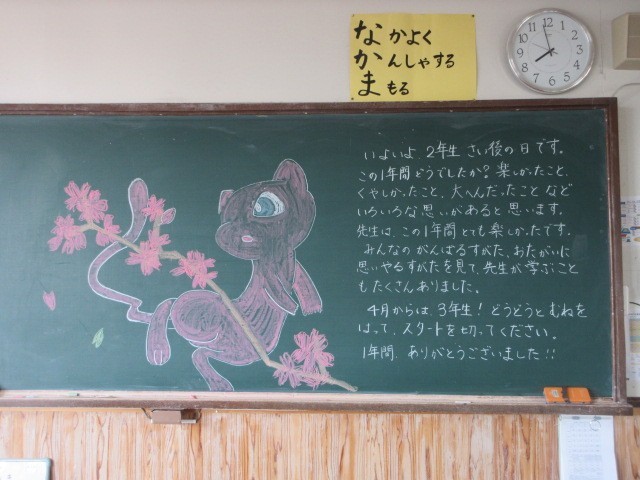 なかよく
かんしゃする
まもる
いよいよ 2年生 さい後の日です。
この1年間どうでしたか？楽しかったこと、
くやしかったこと、大へんだったことなど
いろいろな思いがあると思います。
先生は、この1年間とても楽しかったです。
みんなのがんばるすがた、おたがいに
思いやるすがたを見て、先生が学ぶこと
もたくさんありました。
4月からは3年生！どうどうとむねを
はって、スタートを切ってください。
1年間、ありがとうございました!!
12
1
2
3
4
5
6
7
8
9
10
11